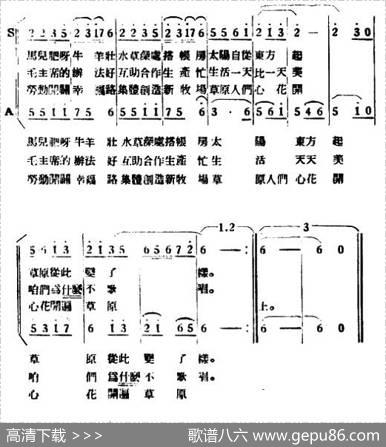 S 2235 23176 2235 23176 5561 1235 2·13 2- 2 30
馬兒肥呀 牛 羊壯 水草深處搭帳 房 太陽自從 東方 起
毛主席的 辦 法好 互助合作生產 忙 生活一天 比一天 美
勞動開闢 幸 福路 集體創造新牧 場 草原人們 心花 開
A
馬兒肥呀 牛羊壯 水草深處搭帳房 太 陽 東方 起
毛主席的 辦法好 互助合作生產忙 生 活 天天 美
勞動開闢 幸福路 集體創造新牧場 草 原人們 心花 開
1.2 3
5 6 i 3 2 i 3 5 6 5 6 7 2 6 - : 6 - 6 0
草原從此 變 了 樣。
咱們爲什麽 不 歌 唱。
心花開遍 草 原 上。
5 3 1 7 6 i 3 2 i 6 5 6 - : 6 - 6 0
草 原 從此 變 了 樣。
咱 們 爲什麽 不 歌 唱。
心 花 開遍 草 原
高清下载 >>> 歌谱八六 www.gepu86.com